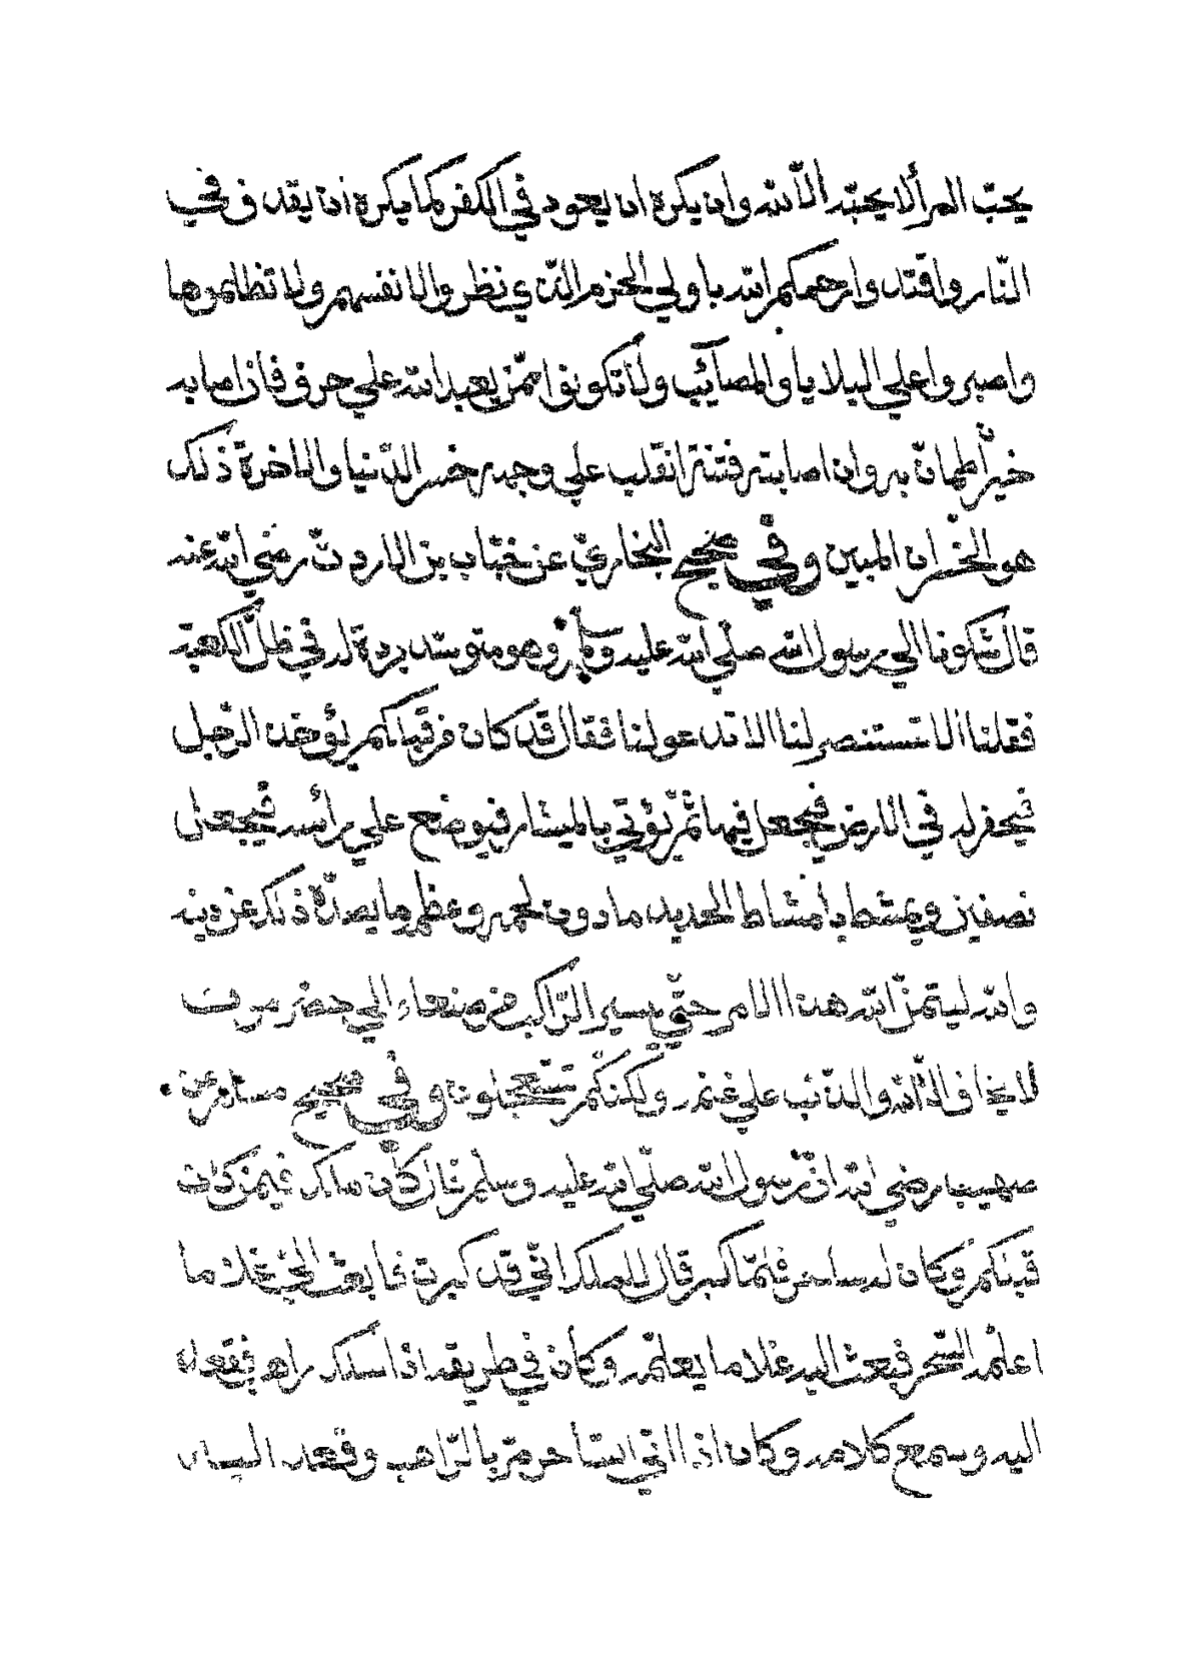 يحبّ المرألا يحبّه الّا لله وان يكره ان يعود في الكفر كما يكره ان يقذف في
النّار واقتد وارحمكم الله يا ولي الحزم الذي نظر والا نفسهم ولا تظلموها
واصبروا علي البلايا والمصآئب ولا تكونوا ممّن يعبد الله علي حرف فاذا صابه
خيرٌ اطمانّ به وان اصابته فتنة انقلب علي وجهه خسر الدّنيا والاخرة ذلك
هو الخسران المبين وفي صحيح البخاريّ عن خبّاب بن الاردتّ رضي الله عنه
قال شكونا الي رسول الله صلّي الله عليه وسلّم وهو متوسّد بردة له في ظلّ الكعبة
فقلنا الا تستنصر لنا الا تدعو لنا فقال قد كان من قبلكم يؤخذ الرّجل
فيحفر له في الارض فيجعل فيها ثمّ يؤتي بالميشار فيوضع علي رأسه فيجعل
نصفين ويمشط بأمشاط الحديد ما دون لحمه وعظمه ما يصدّه ذلك عن دينه
والله ليتمّنّ الله هذا الامر حتّي يسير الرّاكب من صنعاء الي حضرموت
لا يخاف الّا الله والذئب علي غنمه ولكنّكم تستعجلون وفي صحيح مسلم عن
صهيب رضي الله انّ رسول الله صلّي الله عليه وسلّم قال كان ملك فيمن كان
قبلكم وكان له ساحر فلمّا كبر قال للملك انّي قد كبرت فابعث اليّ غلاما
اعلّمه السّحر فبعث اليه غلاما يعلّمه وكان في طريقه اذا سلك راهب فقعد
اليه وسمع كلامه وكان اذا اتي السّاحر مرّ بالرّاهب وقعد اليه